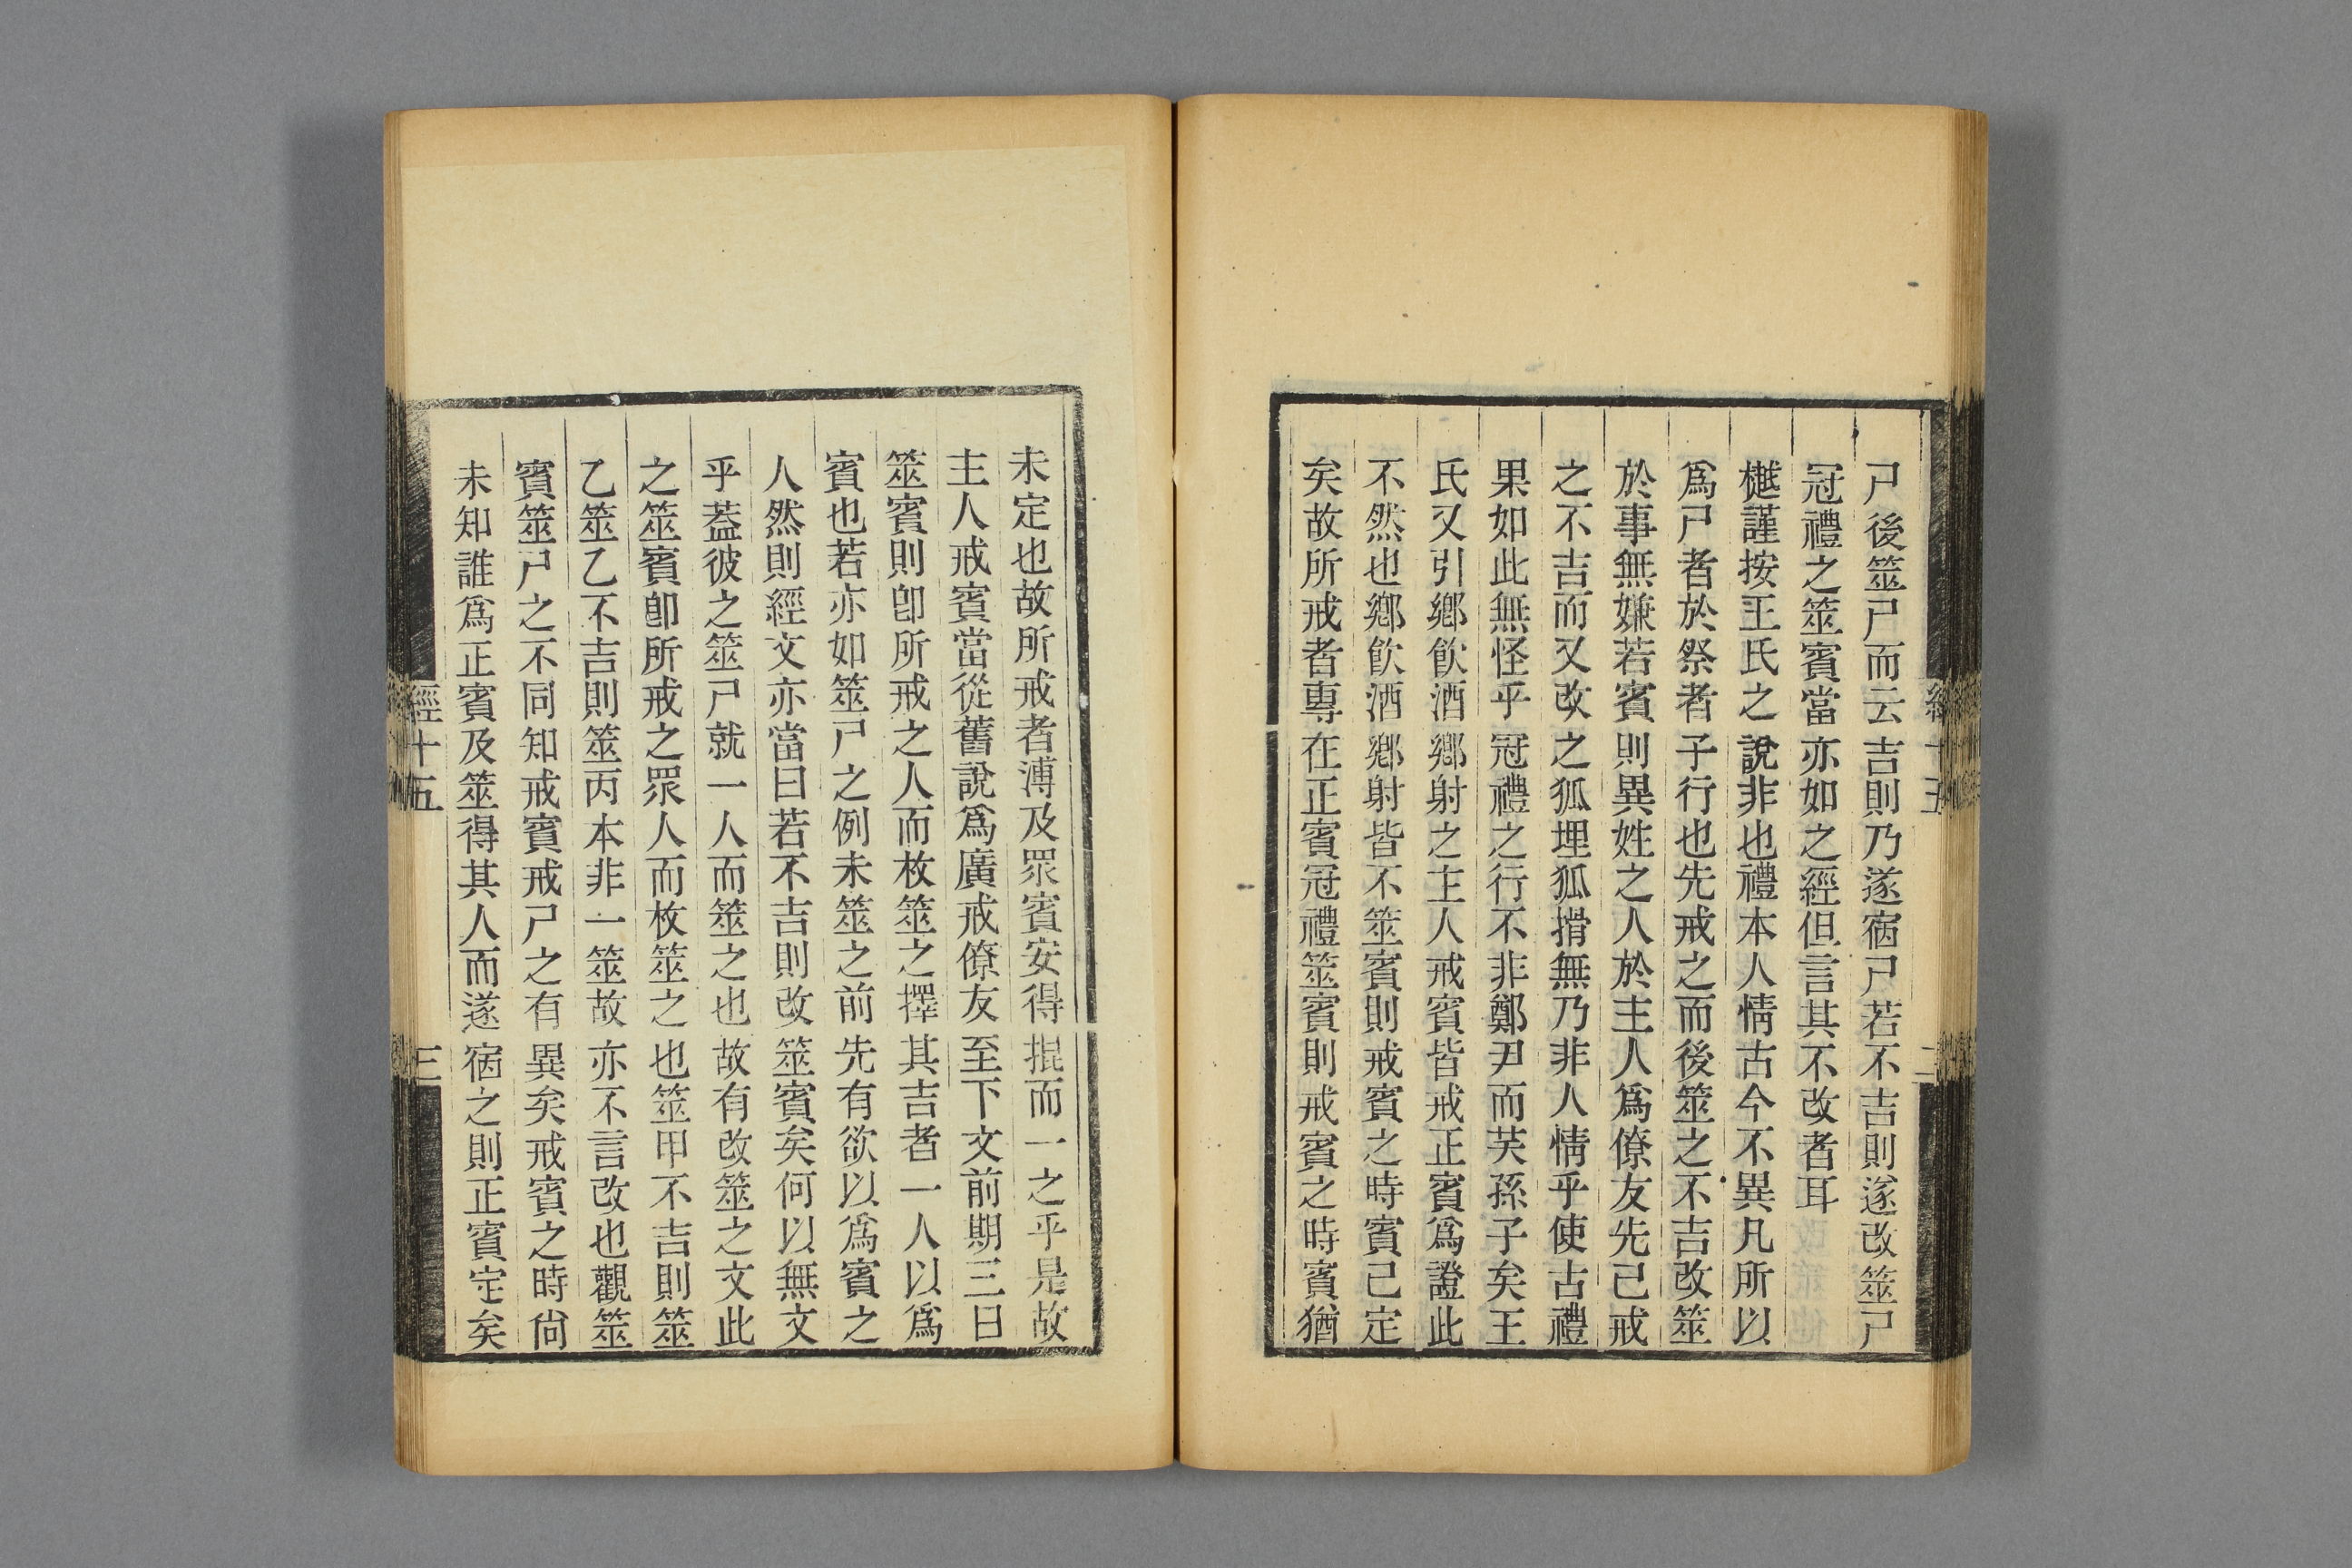 尸後筮尸而云吉則乃遂宿尸若不吉則遂改筮尸
冠禮之筮賓當亦如之經但言其不改者耳
樾謹按王氏之說非也禮本人情古今不異凡所以
爲尸者於祭者子行也先戒之而後筮之不吉改筮
於事無嫌若賓則異姓之人於主人爲僚友先已戒
之不吉而又改之狐埋狐搰無乃非人情乎使古禮
果如此無怪乎冠禮之行不非鄭尹而芺孫子矣王
氏又引鄉飮酒鄉射之主人戒賓皆戒正賓爲證此
不然也鄉飮酒鄉射皆不筮賓則戒賓之時賓已定
矣故所戒者專在正賓冠禮筮賓則戒賓之時賓猶
經十五
二
未定也故所戒者溥及眾賓安得掍而一之乎是故
主人戒賓當從舊說爲廣戒僚友至下文前期三日
筮賓則卽所戒之人而枚筮之擇其吉者一人以爲
賓也若亦如筮尸之例未筮之前先有欲以爲賓之
人然則經文亦當曰若不吉則改筮賓矣何以無文
乎葢彼之筮尸就一人而筮之也故有改筮之文此
之筮賓卽所戒之眾人而枚筮之也筮甲不吉則筮
乙筮乙不吉則筮丙本非一筮故亦不言改也觀筮
賓筮尸之不同知戒賓戒尸之有異矣戒賓之時尙
未知誰爲正賓及筮得其人而遂宿之則正賓定矣
經十五
三